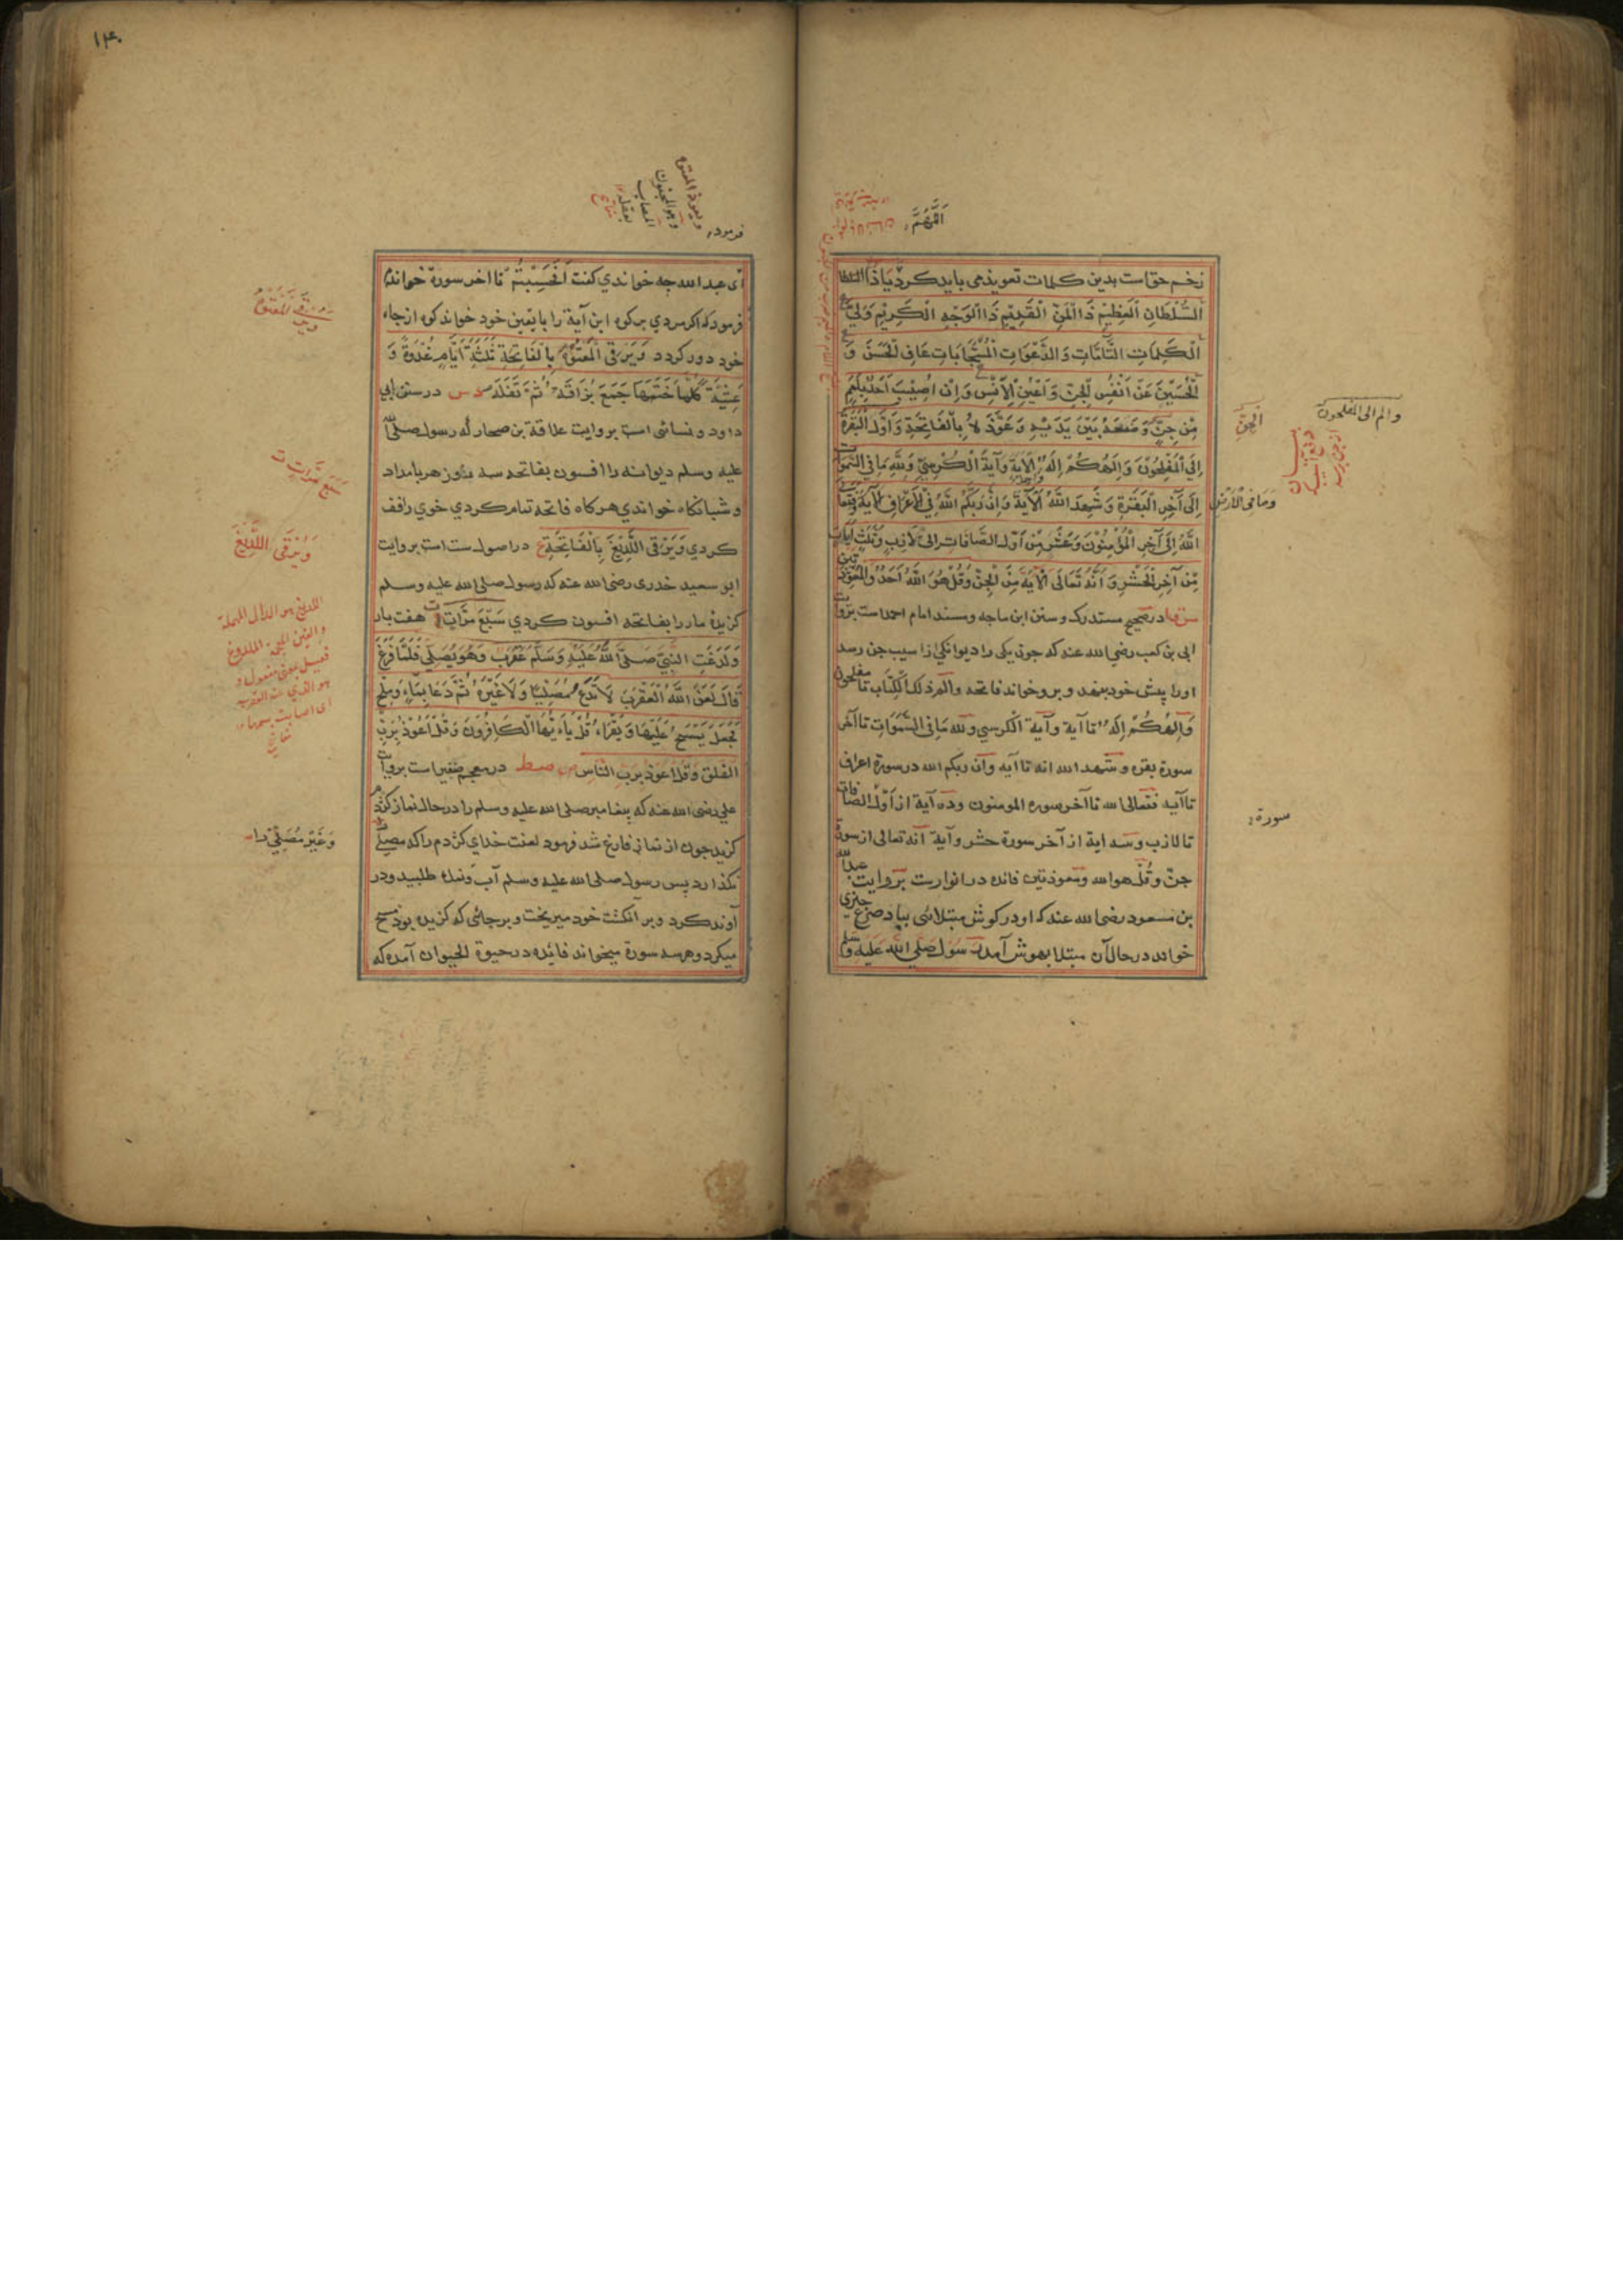 اللهم
زخم حق است بدین کلمات تعویذ می باید کرد یا ذا السلطان
السُّلْطَانِ الْعَظِيْمِ ذَا الْمَنِّ الْقَدِيْمِ ذَا الْوَجْهِ الْكَرِيْمِ وَلِيَّ
الْكَلِمَاتِ التَّامَّاتِ وَالدَّعَوَاتِ الْمُسْتَجَابَاتِ عَافِ الْحَسَنَ وَ
الْحُسَيْنَ عَنْ اَنْفُسِ الْجِنِّ وَاَعْيُنِ الْاِنْسِ وَاِنْ اُصِيْبَ اَحَدٌ بِلَمَمٍ
مِّنْ جِنٍّ وَضَعَهُ بَيْنَ يَدَيْهِ وَعَوَّذَهُ بِالْفَاتِحَةِ وَاَوَّلَ الْبَقَرَةِ
اِلَى الْمُفْلِحُوْنَ وَاِلٰهُكُمْ اِلٰهٌ الْاٰيَةَ وَآيَةَ الْكُرْسِيِّ وَلِلّٰهِ مَا فِي السَّمٰوَاتِ
اِلَى آخِرِ الْبَقَرَةِ وَشَهِدَ اللّٰهُ الْاٰيَةَ وَاِنَّ رَبَّكُمُ اللّٰهُ فِي الْاَعْرَافِ الْاٰيَةَ فَتَعَالَى
اللّٰهُ اِلَى آخِرِ الْمُؤْمِنُوْنَ وَعَشْرٍ مِّنْ اَوَّلِ الصَّافَّاتِ اِلَى لَازِبٍ وَّثَلٰثِ اٰيَاتٍ
مِّنْ آخِرِ الْحَشْرِ وَاَنَّهُ تَعَالَى الْاٰيَةَ مِنَ الْجِنِّ وَقُلْ هُوَ اللّٰهُ اَحَدٌ وَالْمُعَوِّذَتَيْنِ
در صحیح مستدرک و سنن ابن ماجه ومسند امام احمد است بروایت
ابی بن کعب رضی الله عنه که چون یکی را دیوانگی از اسیب جن رسد
اورا پیش خود بنهد و برو خواند فاتحه والم ذلک الکتاب تا مفلحون
وَاِلٰهُكُمْ اِلٰهٌ تا آیة وآیة الکرسي ولله مَا فی السَّمٰوَات تا آخر
سورة بقره و شهد الله انه تا آیه وان ربکم الله در سورة اعراف
تا آیه فتعالی الله تا آخر سوره المومنون وده آیة از اول الصافات
تا لازب وسه ایة از آخر سورة حشر وآیة انه تعالی از سورة
جن وقل هو الله ومعوذتین فائده در انوارست بروایت عبدالله
بن مسعود رضی الله عنه که او در گوش مبتلائی بباد صرع چیزی
خواند در حال آن مبتلا بهوش آمد رسول صَلَّی اللّٰهُ عَلَیْهِ وسلم
الْجِنِّ
والم الی المفلحون
وَمَا فِی الْاَرْضِ
سورة
۱۴۰
فرمود
ای عبد الله چه خواندي گفت اَفَحَسِبْتُمْ تا اخر سورة خواندم
فرمود که اگر مردي بر کوه این آیة را بایقین خود خواند کوه از جاء
خود دور گردد وَيَرْقِى الْمَعْتُوْهَ بِالْفَاتِحَةِ ثَلٰثَةَ اَيَّامٍ غُدْوَةً وَّ
عَشِيَّةً كُلَّمَا خَتَمَهَا جَمَعَ بُزَاقَهُ ثُمَّ تَفَلَهُ د س در سنن ابي
داود و نسائی است بروایت علاقة بن صحار که رسول صلی الله
علیه وسلم دیوانه را افسون بفاتحه سه روز هر بامداد
و شبانگاه خواندي هرگاه فاتحه تمام کردي خوي را تف
کردي وَيَرْقِى اللَّدِيْغَ بِالْفَاتِحَةِ ع در اصول ست است بروایت
ابو سعید خدری رضی الله عنه که رسول صلی الله علیه وسلم
گزیدۀ مار را بفاتحه افسون کردي سَبْعَ مَرَّاتٍ ت هفت بار
وَلَدَغَتِ النَّبِيَّ صَلَّى اللّٰهُ عَلَيْهِ وَسَلَّمَ عَقْرَبٌ وَهُوَ يُصَلِّي فَلَمَّا فَرَغَ
قَالَ لَعَنَ اللّٰهُ الْعَقْرَبَ لَا تَدَعُ مُصَلِّيًا وَلَا غَيْرَهُ ثُمَّ دَعَا بِمَاءٍ وَمِلْحٍ
فَجَعَلَ يَمْسَحُ عَلَيْهَا وَيَقْرَاءُ قُلْ يَاءَيُّهَا الْكَافِرُوْنَ وَقُلْ اَعُوْذُ بِرَبِّ
الفلق وَقُلْ اَعُوْذُ بِرَبِّ النَّاسِ صط در معجم صغیر است بروایت
علی رضی الله عنه که پیغامبر صلی الله علیه وسلم را در حالت نماز کژدم
گزید چون از نماز فارغ شد فرمود لعنت خدای کژدم را که مصلی
نگذارد پس رسول صلی الله علیه وسلم آب ونمک طلبید ودر
آوند کرد و بر انگشت خود میریخت و بر جائی که گزیده بود مسح
میکرد و هر سه سورة میخواند فائده در حیوة الحیوان آمده که
سَبْعَ مَرَّاتٍ ت
وَيَرْقِى اللَّدِيْغَ
اللدیغ هو بالدال المهملة
والغین المعجمة الملدوغ
فعیل بمعنی مفعول و
هو الذي لدغته العقرب
ای اصابته بسمها